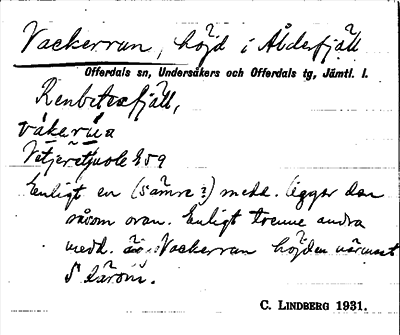 Vackerrun, höjd i Åbderfjäll
Offerdals sn, Undersåkers och Offerdals tg, Jämtl. l.
Renbetesfjäll,
Enligt en (sämre?) medd. ligger den
såsom ovan. Enligt trenne andra
medd. är Vackerrun höjden närmast
S därom.
C. LINDBERG 1931.